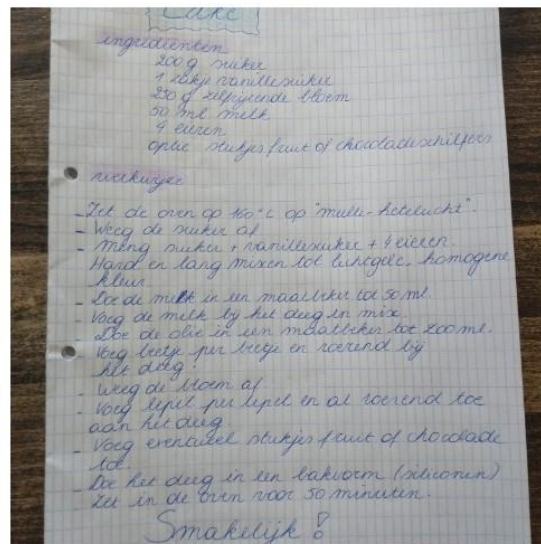 Cake
ingrediënten
200 g suiker
1 zakje vanillesuiker
250 g zelfrijzende bloem
50 ml melk
4 eieren
optie stukjes fruit of chocoladeschilfers
werkwijze
- Zet de oven op 160°C op "multi-hetelucht".
- Weeg de suiker af
- Meng suiker + vanillesuiker + 4 eieren.
Hard en lang mixen tot lichtgele, homogene
kleur.
- Doe de melk in een maatbeker tot 50 ml.
- Voeg de melk bij het deeg en mix.
- Doe de olie in een maatbeker tot 200 ml.
- Voeg beetje per beetje en roerend bij
het deeg!
- Weeg de bloem af.
- Voeg lepel per lepel en al roerend toe
aan het deeg.
- Voeg eventueel stukjes fruit of chocolade
toe.
- Doe het deeg in een bakvorm (siliconen)
- Zet in de oven voor 50 minuten.
Smakelijk!